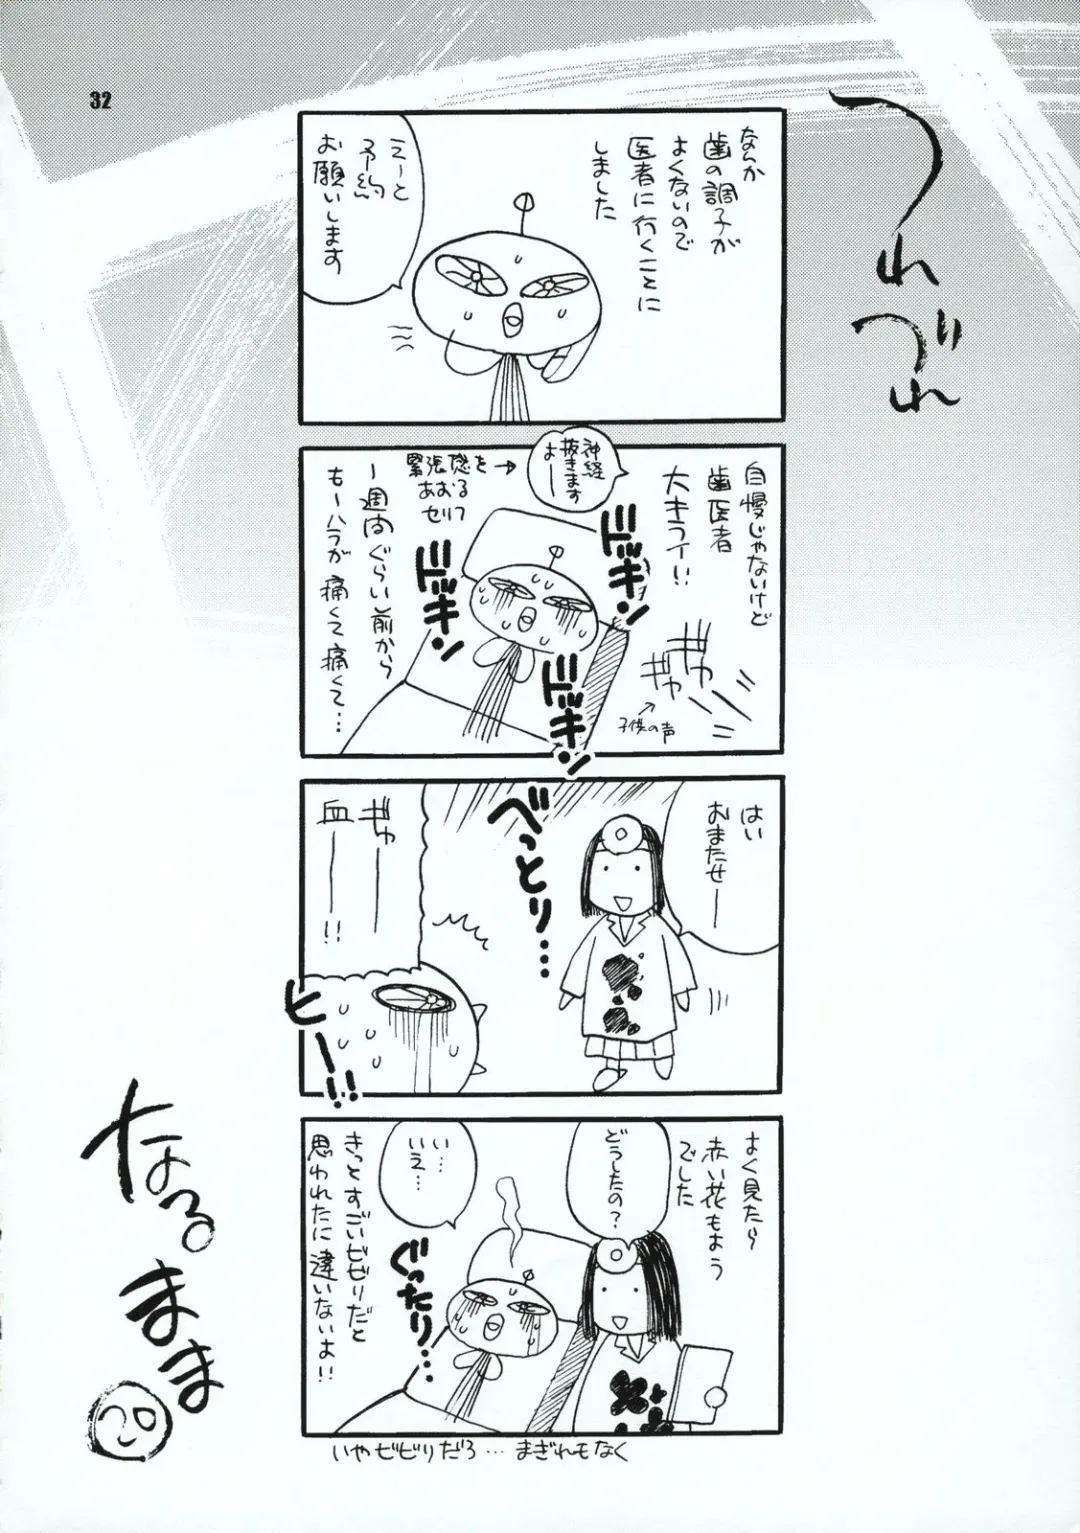 32
つれづれ
なるまま
20
なんか
歯の調子が
よくないので
医者に行くことに
しました
えーと
予約
お願いします
自慢じゃないけど
歯医者
大キライ!!
神経
抜きます
よー
緊張感を→
あおる
セリフ
ドッキン
ドッキン
ドッキン
ギャー
ギャー
子供の声
一週間ぐらい前から
もーハラが痛くて痛くて…
はい
おまたせー
べっとり…
ギャー
血ー!!
ヒー!!
よく見たら
赤い花もよう
でした
どうしたの?
い…
いえ…
ぐったり…
きっとすごいビビリだと
思われたに違いないよ!!
いやビビリだろ…まぎれもなく